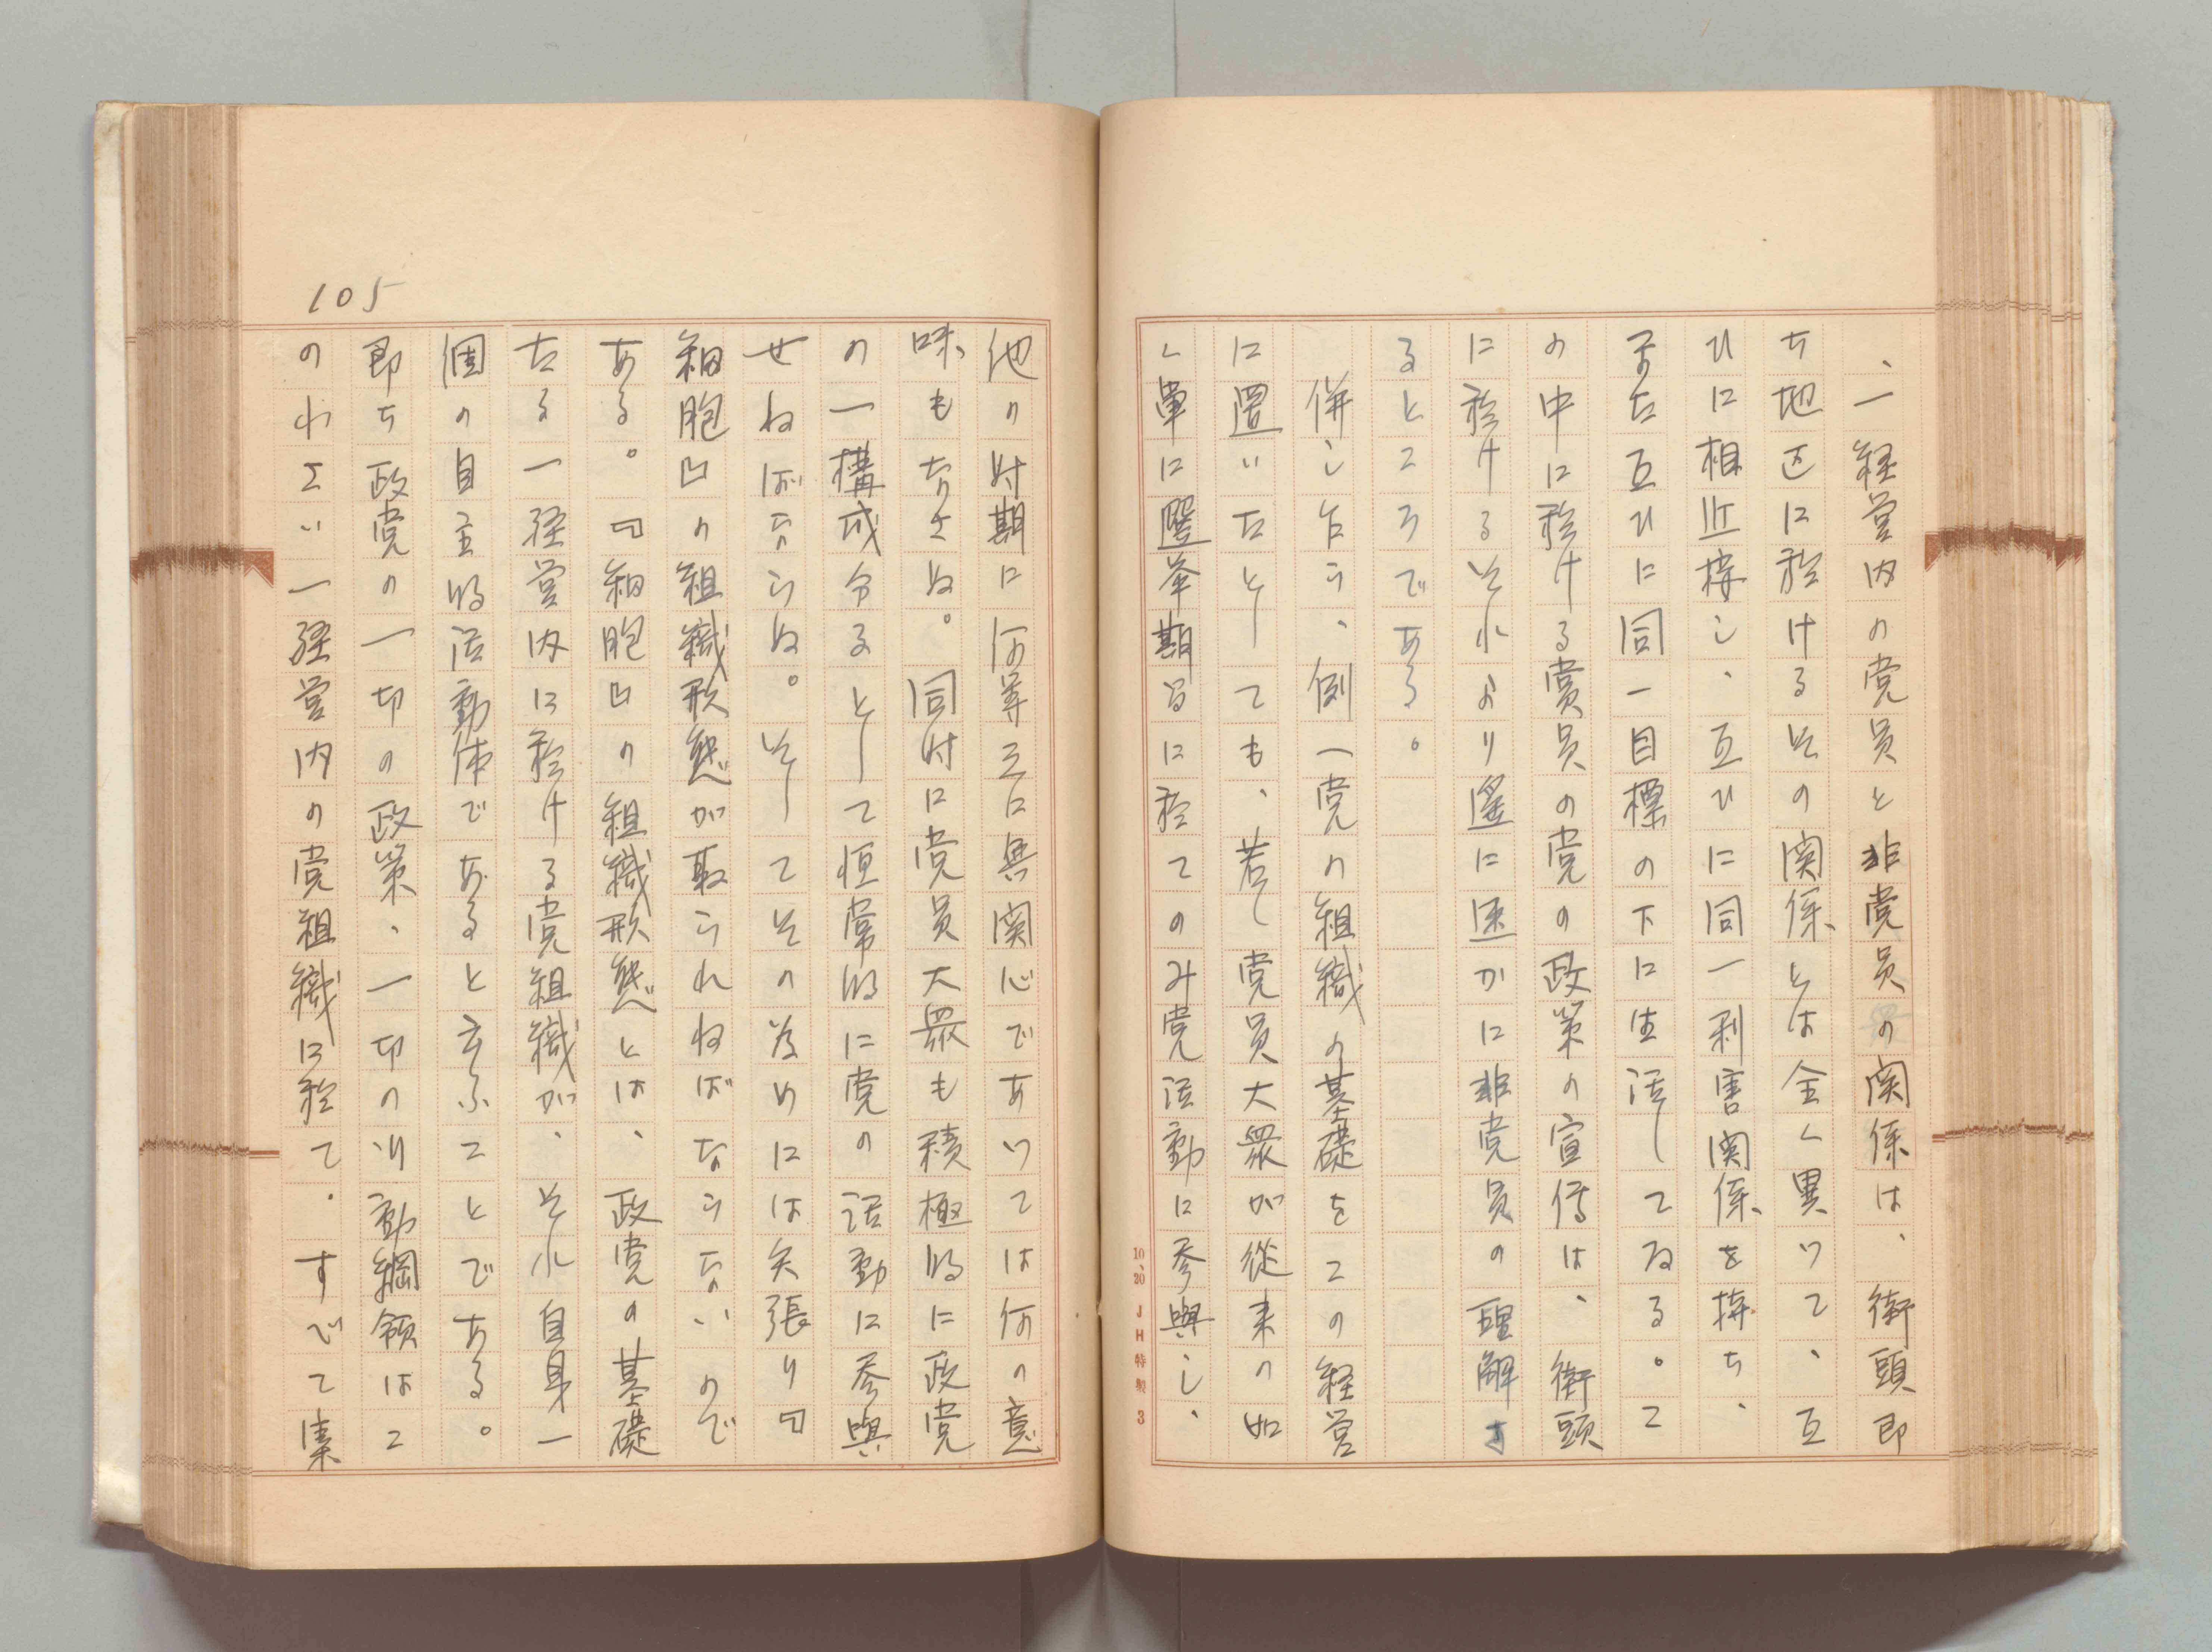 、一経営内の党員と非党員の関係は、街頭即
ち地区に於けるその関係とは全く異つて、互
ひに相近接し、互ひに同一利害関係を持ち、
また互ひに同一目標の下に生活してゐる。こ
の中に於ける党員の党の政策の宣傳は、街頭
に於けるそれより遙に遥かに非党員の理解さ
るところである。
併し乍ら、例へ党の組織の基礎をこの経営
に置いたとしても、若し党員大衆が從来の如
く單に選挙期日に於てのみ党活動に参與し、
10、20 JH特製 3
105
他の時期に何等之に無関心であつては何の意
味もなさぬ。同時に党員大衆も積極的に政党
の一構成分子として恒常的に党の活動に参與
せねばならぬ。そしてその為めには矢張り『
細胞』の組織形態が取られねばならないので
ある。『細胞』の組織形態とは、政党の基礎
たる一経営内に於ける党組織が、それ自身一
個の自主的活動体であると云ふことである。
即ち政党の一切の政策、一切の行動綱領はこ
のれよい一経営内の党組織に於て、すべて集